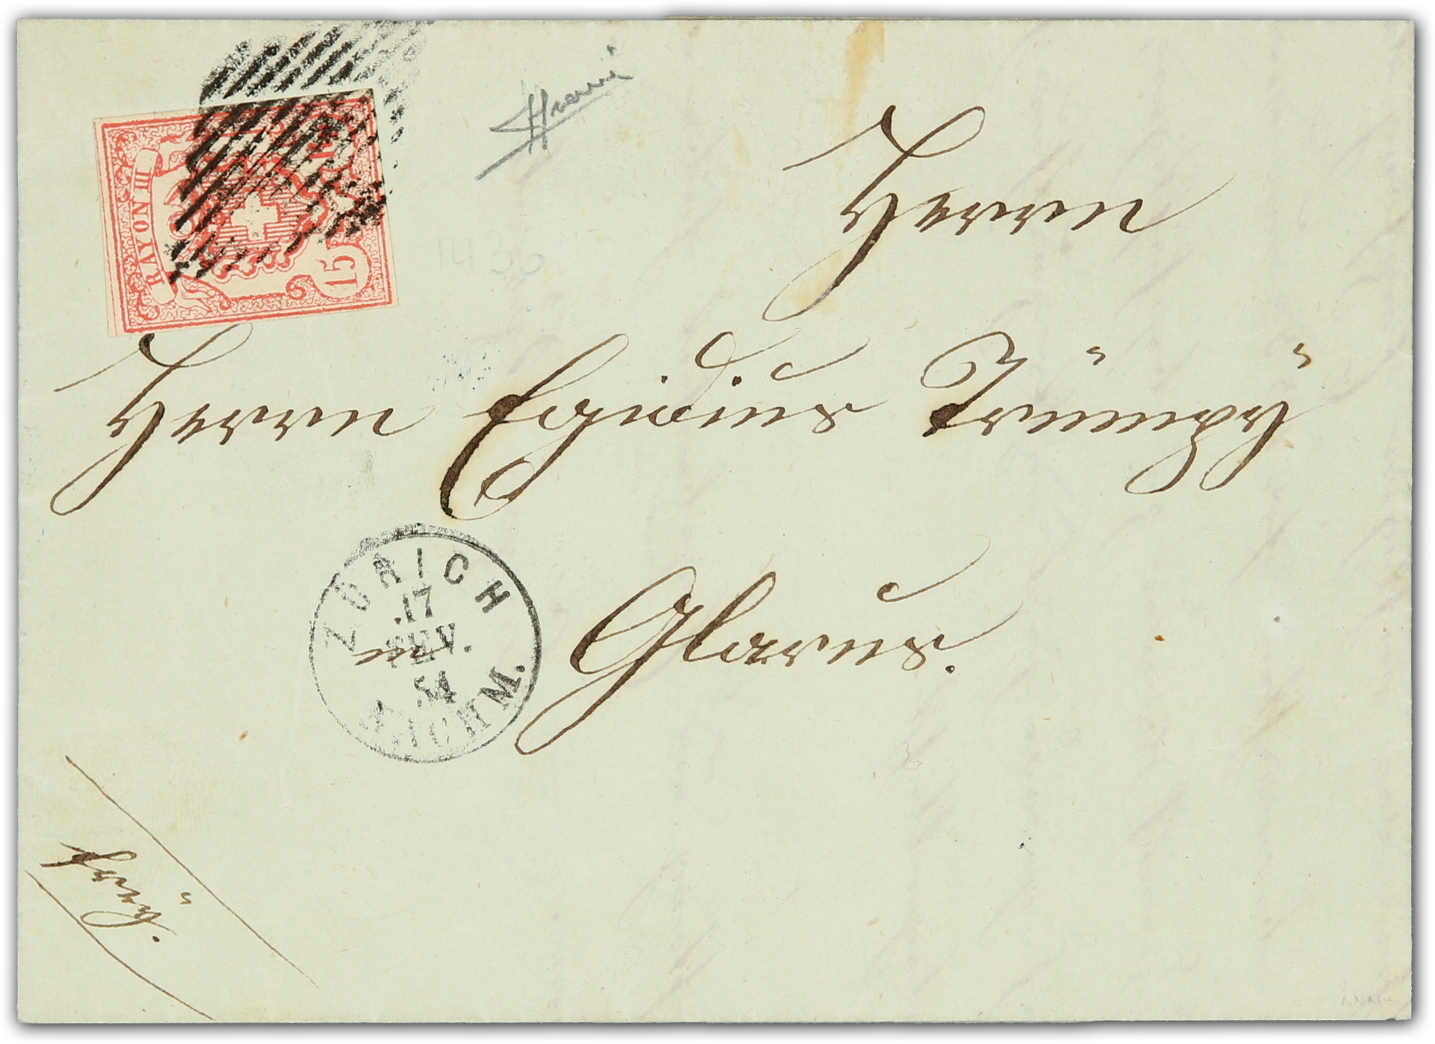 RAYON III
15
1436
Herrn
Herrn Egidius Trümpÿ
in Glarus.
ZÜRICH
17
FEV.
54
NACHM.
frey.